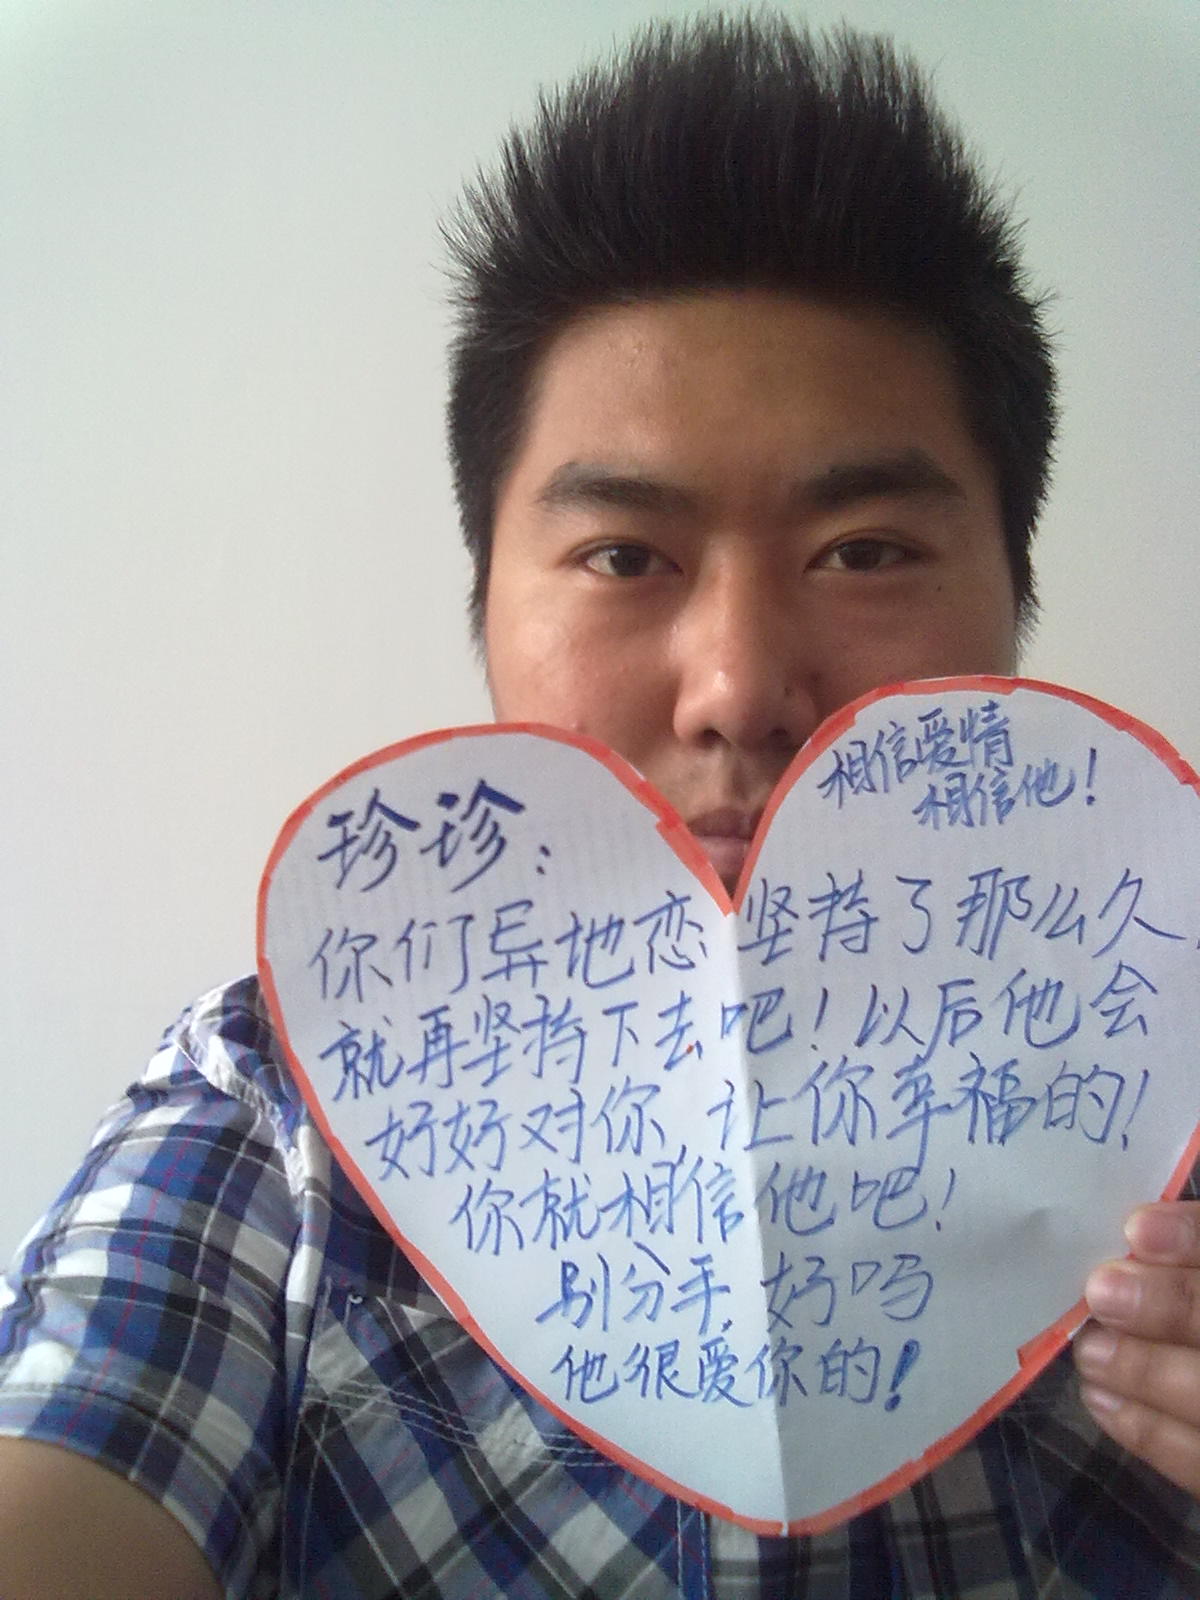 相信爱情
相信他！
珍珍：
你们异地恋坚持了那么久
就再坚持下去吧！以后他会
好好对你,让你幸福的！
你就相信他吧！
别分手,好吗
他很爱你的！